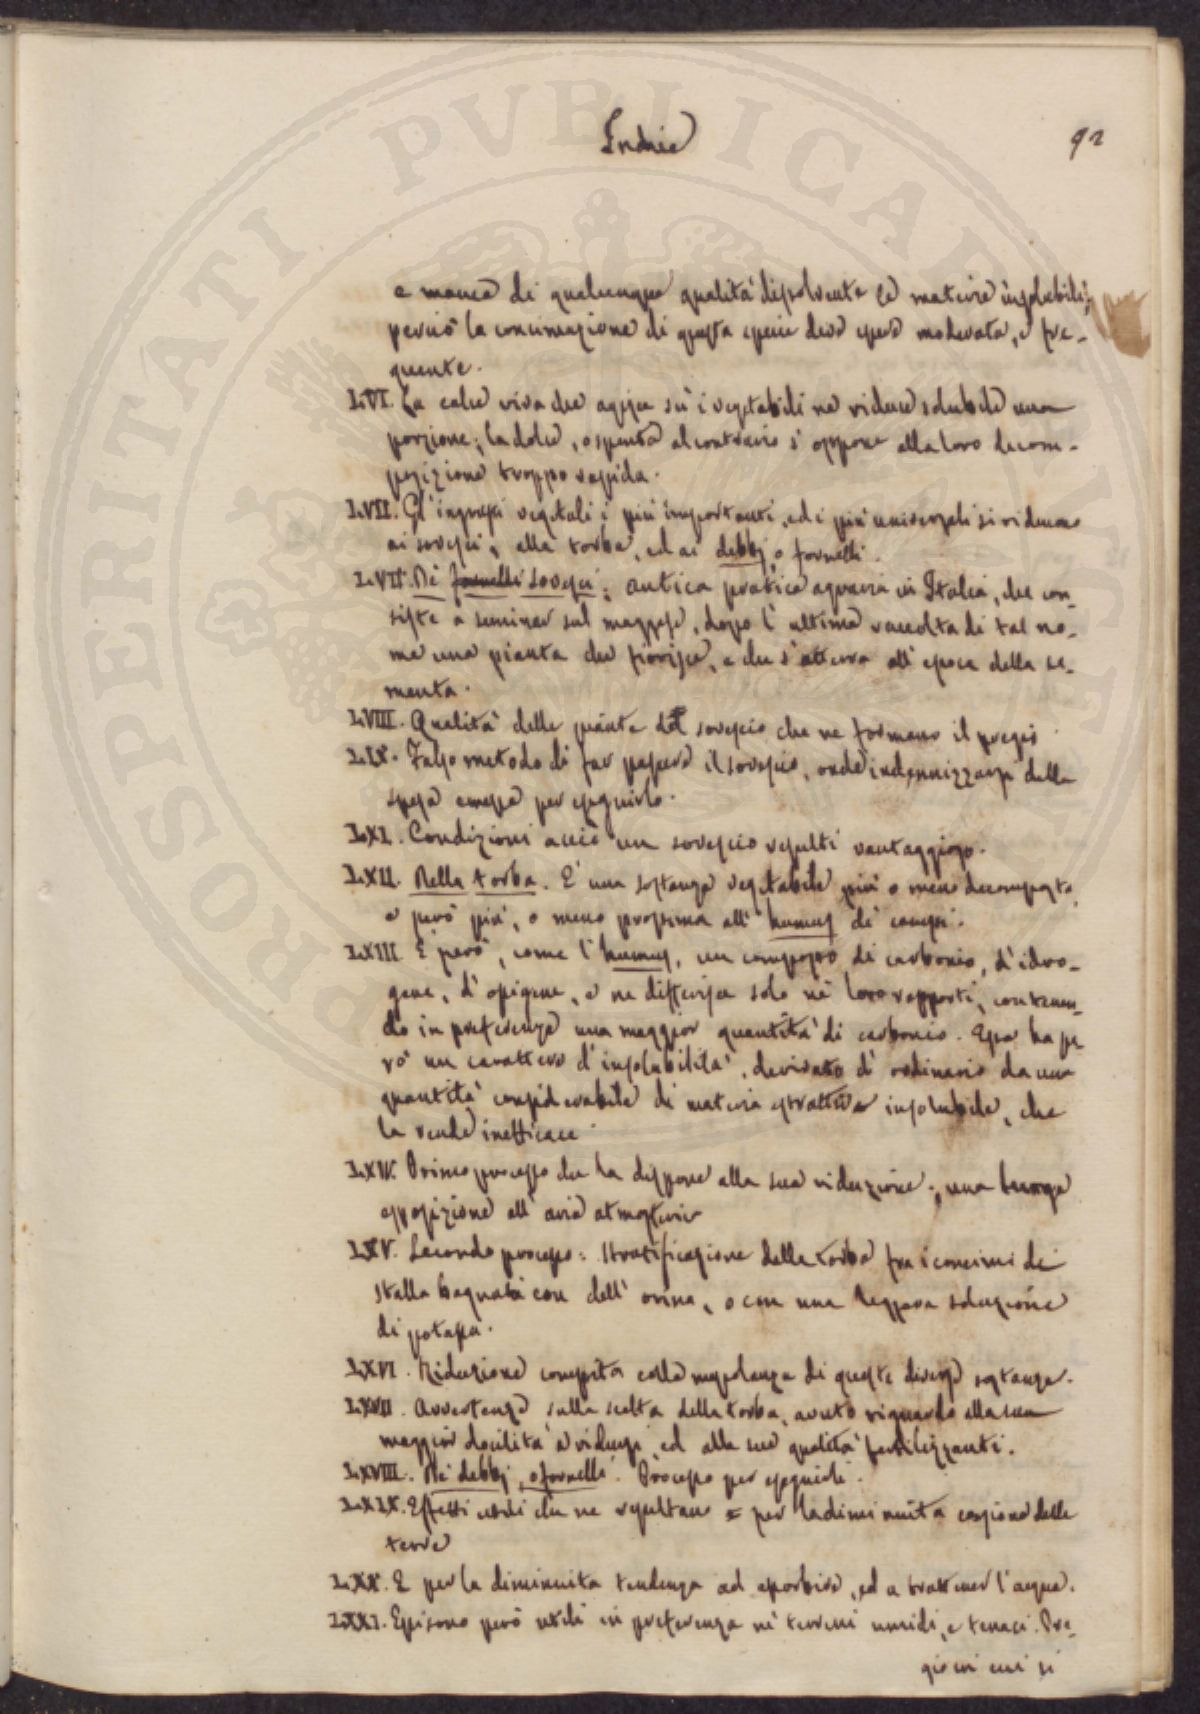 Indice
92
e manca di qualunque qualità dissolvente le materie insolubili;
perciò la concimazione di questa specie deve essere moderata, e fre-
quente.
LVI. La calce viva che agisce su i vegetabili ne riduce solubile una
porzione; la dolce, o spenta al contrario s'oppone alla loro decom-
posizione troppo rapida.
LVII. Gl'ingrassi vegetali i più importanti, ed i più universali si riducono
ai sovesci, alla torba, ed ai debbj o fornelli.
LVII. De' fornelli sovesci: antica pratica agraria in Italia, che con-
siste a seminar sul maggese, dopo l'ultima raccolta di tal no-
me una pianta che fiorisce, e che s'atterra all'epoca della se-
menta.
LVIII. Qualità delle piante del sovescio che ne formano il pregio
LIX. Falso metodo di far pascere il sovescio, onde indennizzarsi della
spesa emessa per eseguirlo.
LXI. Condizioni acciò un sovescio resulti vantaggioso.
LXII. Della torba. È una sostanza vegetabile più o meno decomposta,
e però più, o meno prossima all'humus de' campi.
LXIII. È però, come l'humus, un composto di carbonio, d'idro-
gene, d'ossigene, e ne differisce solo ne' loro rapporti, contenen-
do in preferenza una maggior quantità di carbonio. Essa ha pe-
rò un carattere d'insolubilità, derivato di ordinario da una
quantità considerabile di materia estrattiva insolubile, che
la rende inefficace.
LXIV. Primo processo che la dispone alla sua riduzione; una lunga
esposizione all'aria atmosferica
LXV. Secondo processo: stratificazione della torba fra i concimi di
stalla bagnata con dell'orina, o con una leggera soluzione
di potassa.
LXVI. Riduzione compita colla mescolanza di queste diverse sostanze.
LXVII. Avvertenze sulla scelta della torba, avuto riguardo alla sua
maggior docilità a ridursi, ed alle sue qualità fertilizzanti.
LXVIII. De' debbj, o fornelli. Processo per eseguirli.
LXIX. Effetti utili che ne resultano = per la diminuita coesione delle
terre
LXX. E per la diminuita tendenza ad assorbire, ed a trattener l'acqua.
LXXI. Essi sono però utili in preferenza ne' terreni umidi, e tenaci. Pre-
gio cui si